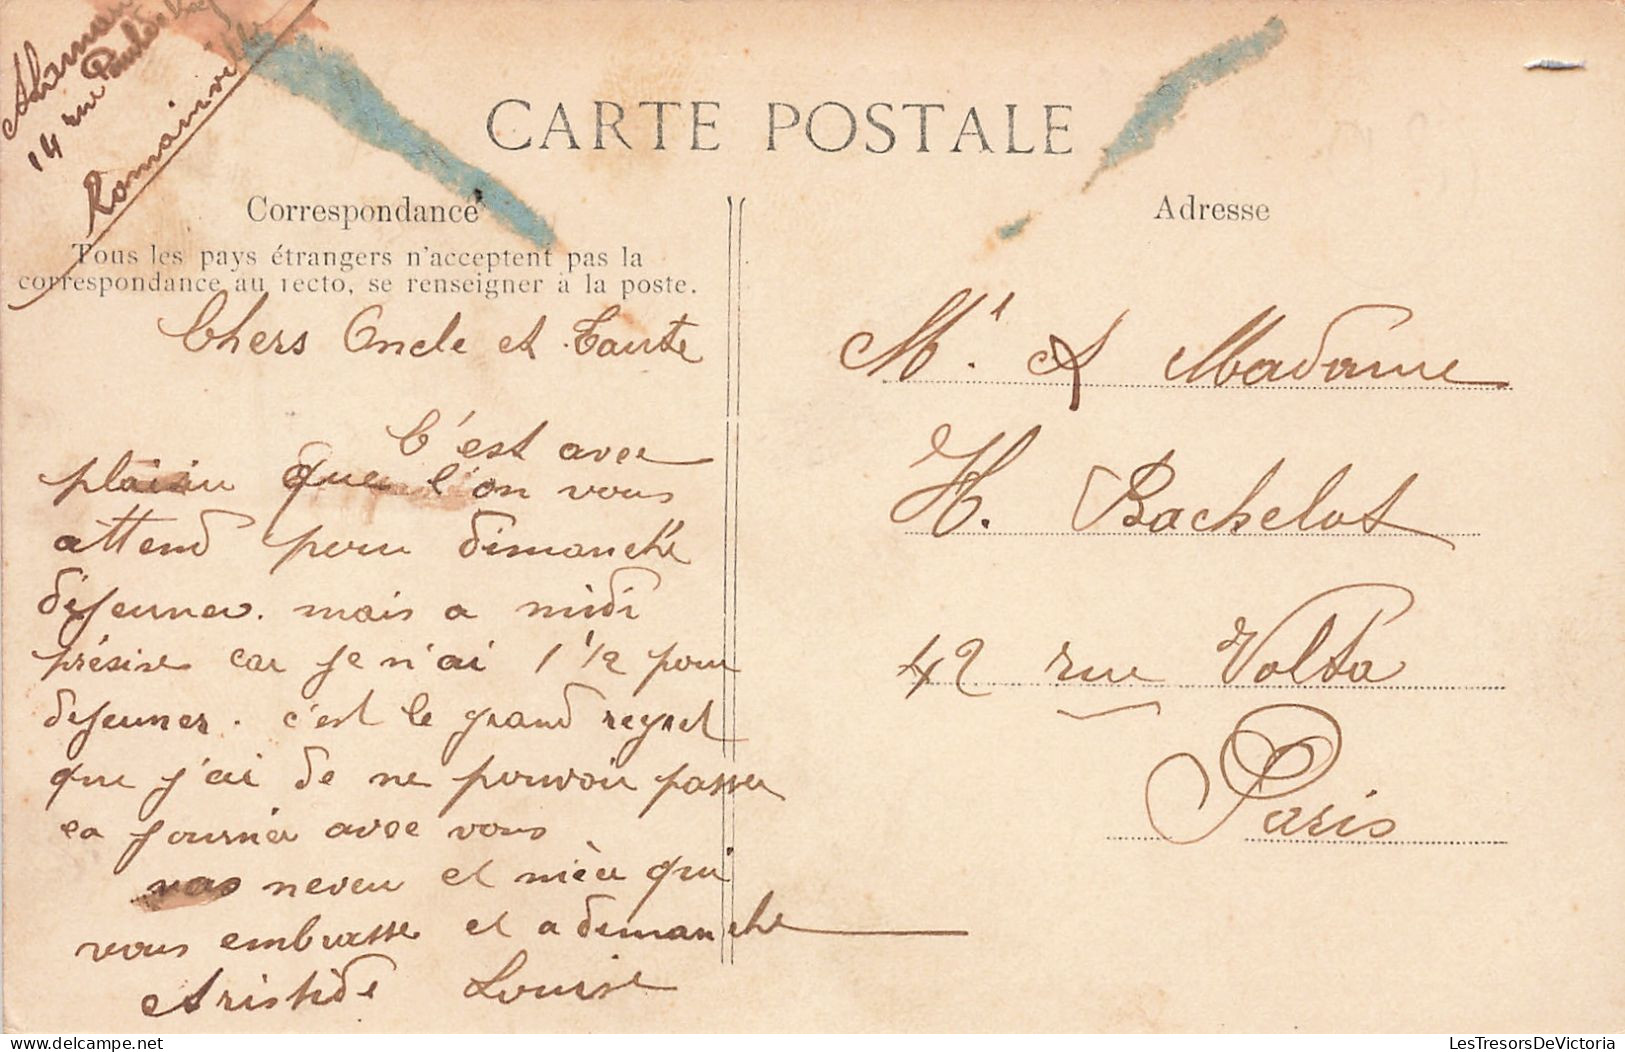 14 rue
Romainville
CARTE POSTALE
Correspondance
Tous les pays étrangers n'acceptent pas la
correspondance au recto, se renseigner à la poste.
Chers Oncle et Tante
C'est avec
plaisir que l'on vous
attend pour dimanche
déjeuner. mais a midi
présise car je n'ai 1 1/2 pour
dejeuner. c'est le grand regret
que j'ai de ne pouvoir passer
la journée avec vous
vos neveu et nièce qui
vous embrasse et a dimanche
Aristide Louise
Adresse
Mr. et Madame
H. Bachelot
42 rue Volta
Paris
LesTresorsDeVictoria